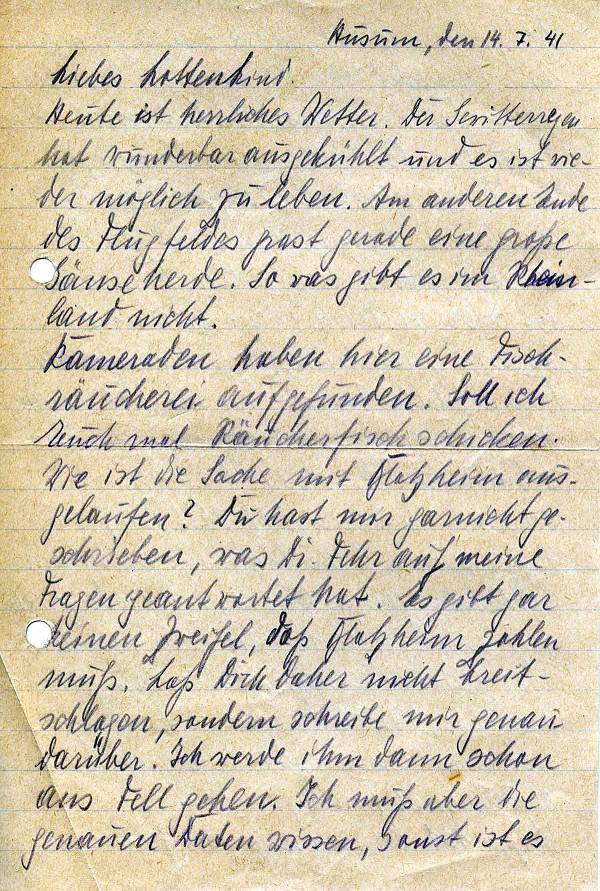 Husum, den 14. 7. 41
Liebes Lottenkind.
Heute ist herrliches Wetter. Der Gewitterregen
hat wunderbar ausgekühlt und es ist wie-
der möglich zu leben. Am anderen Ende
des Flugfeldes grast gerade eine große
Gänseherde. So was gibt es im Rhein-
land nicht.
Kameraden haben hier eine Fisch-
räucherei aufgefunden. Soll ich
Euch mal Räucherfisch schicken.
Wie ist die Sache mit Glatzheim aus-
gelaufen? Du hast mir garnicht ge-
schrieben, was Dr. Fehr auf meine
Fragen geantwortet hat. Es gibt gar
keinen Zweifel, daß Glatzheim zahlen
muß. Laß Dich daher nicht breit-
schlagen, sondern schreibe mir genau
darüber. Ich werde ihm dann schon
aus Fell gehen. Ich muß aber die
genauen Daten wissen, sonst ist es